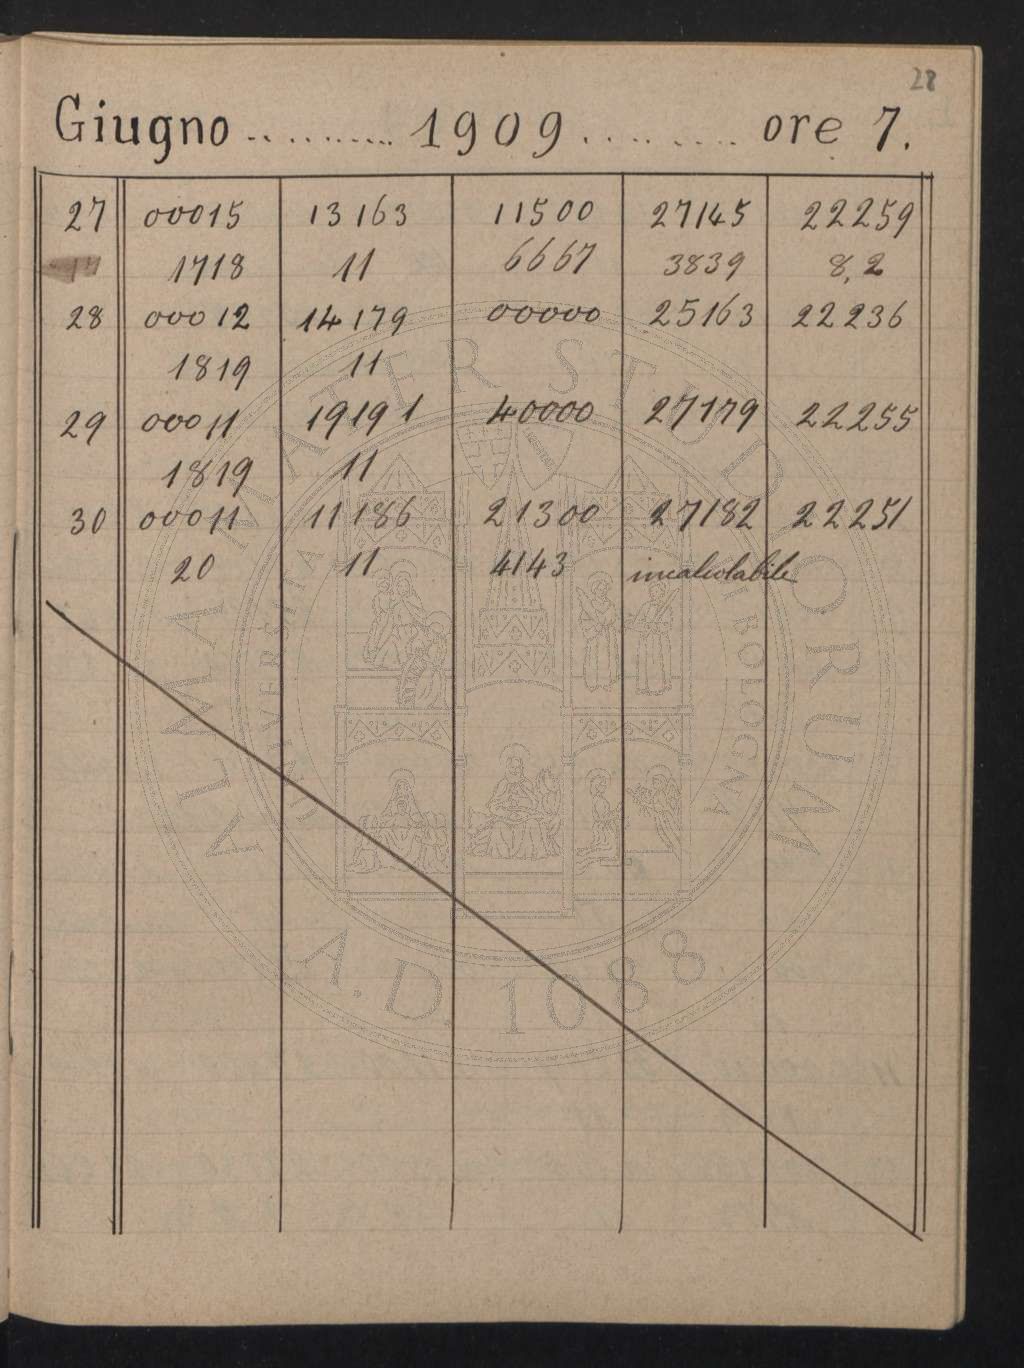 28
Giugno .......... 1909 ........ ore 7.
27 00015 13163 11500 27145 22259
1718 11 6667 3839 8,2
28 00012 14179 00000 25163 22236
1819 11
29 00011 19191 40000 27179 22255
1819 11
30 00011 11186 21300 27182 22251
20 11 4143 incalcolabile
ALMA MATER STUDIORUM
UNIVERSITÀ DI BOLOGNA
A.D. 1088